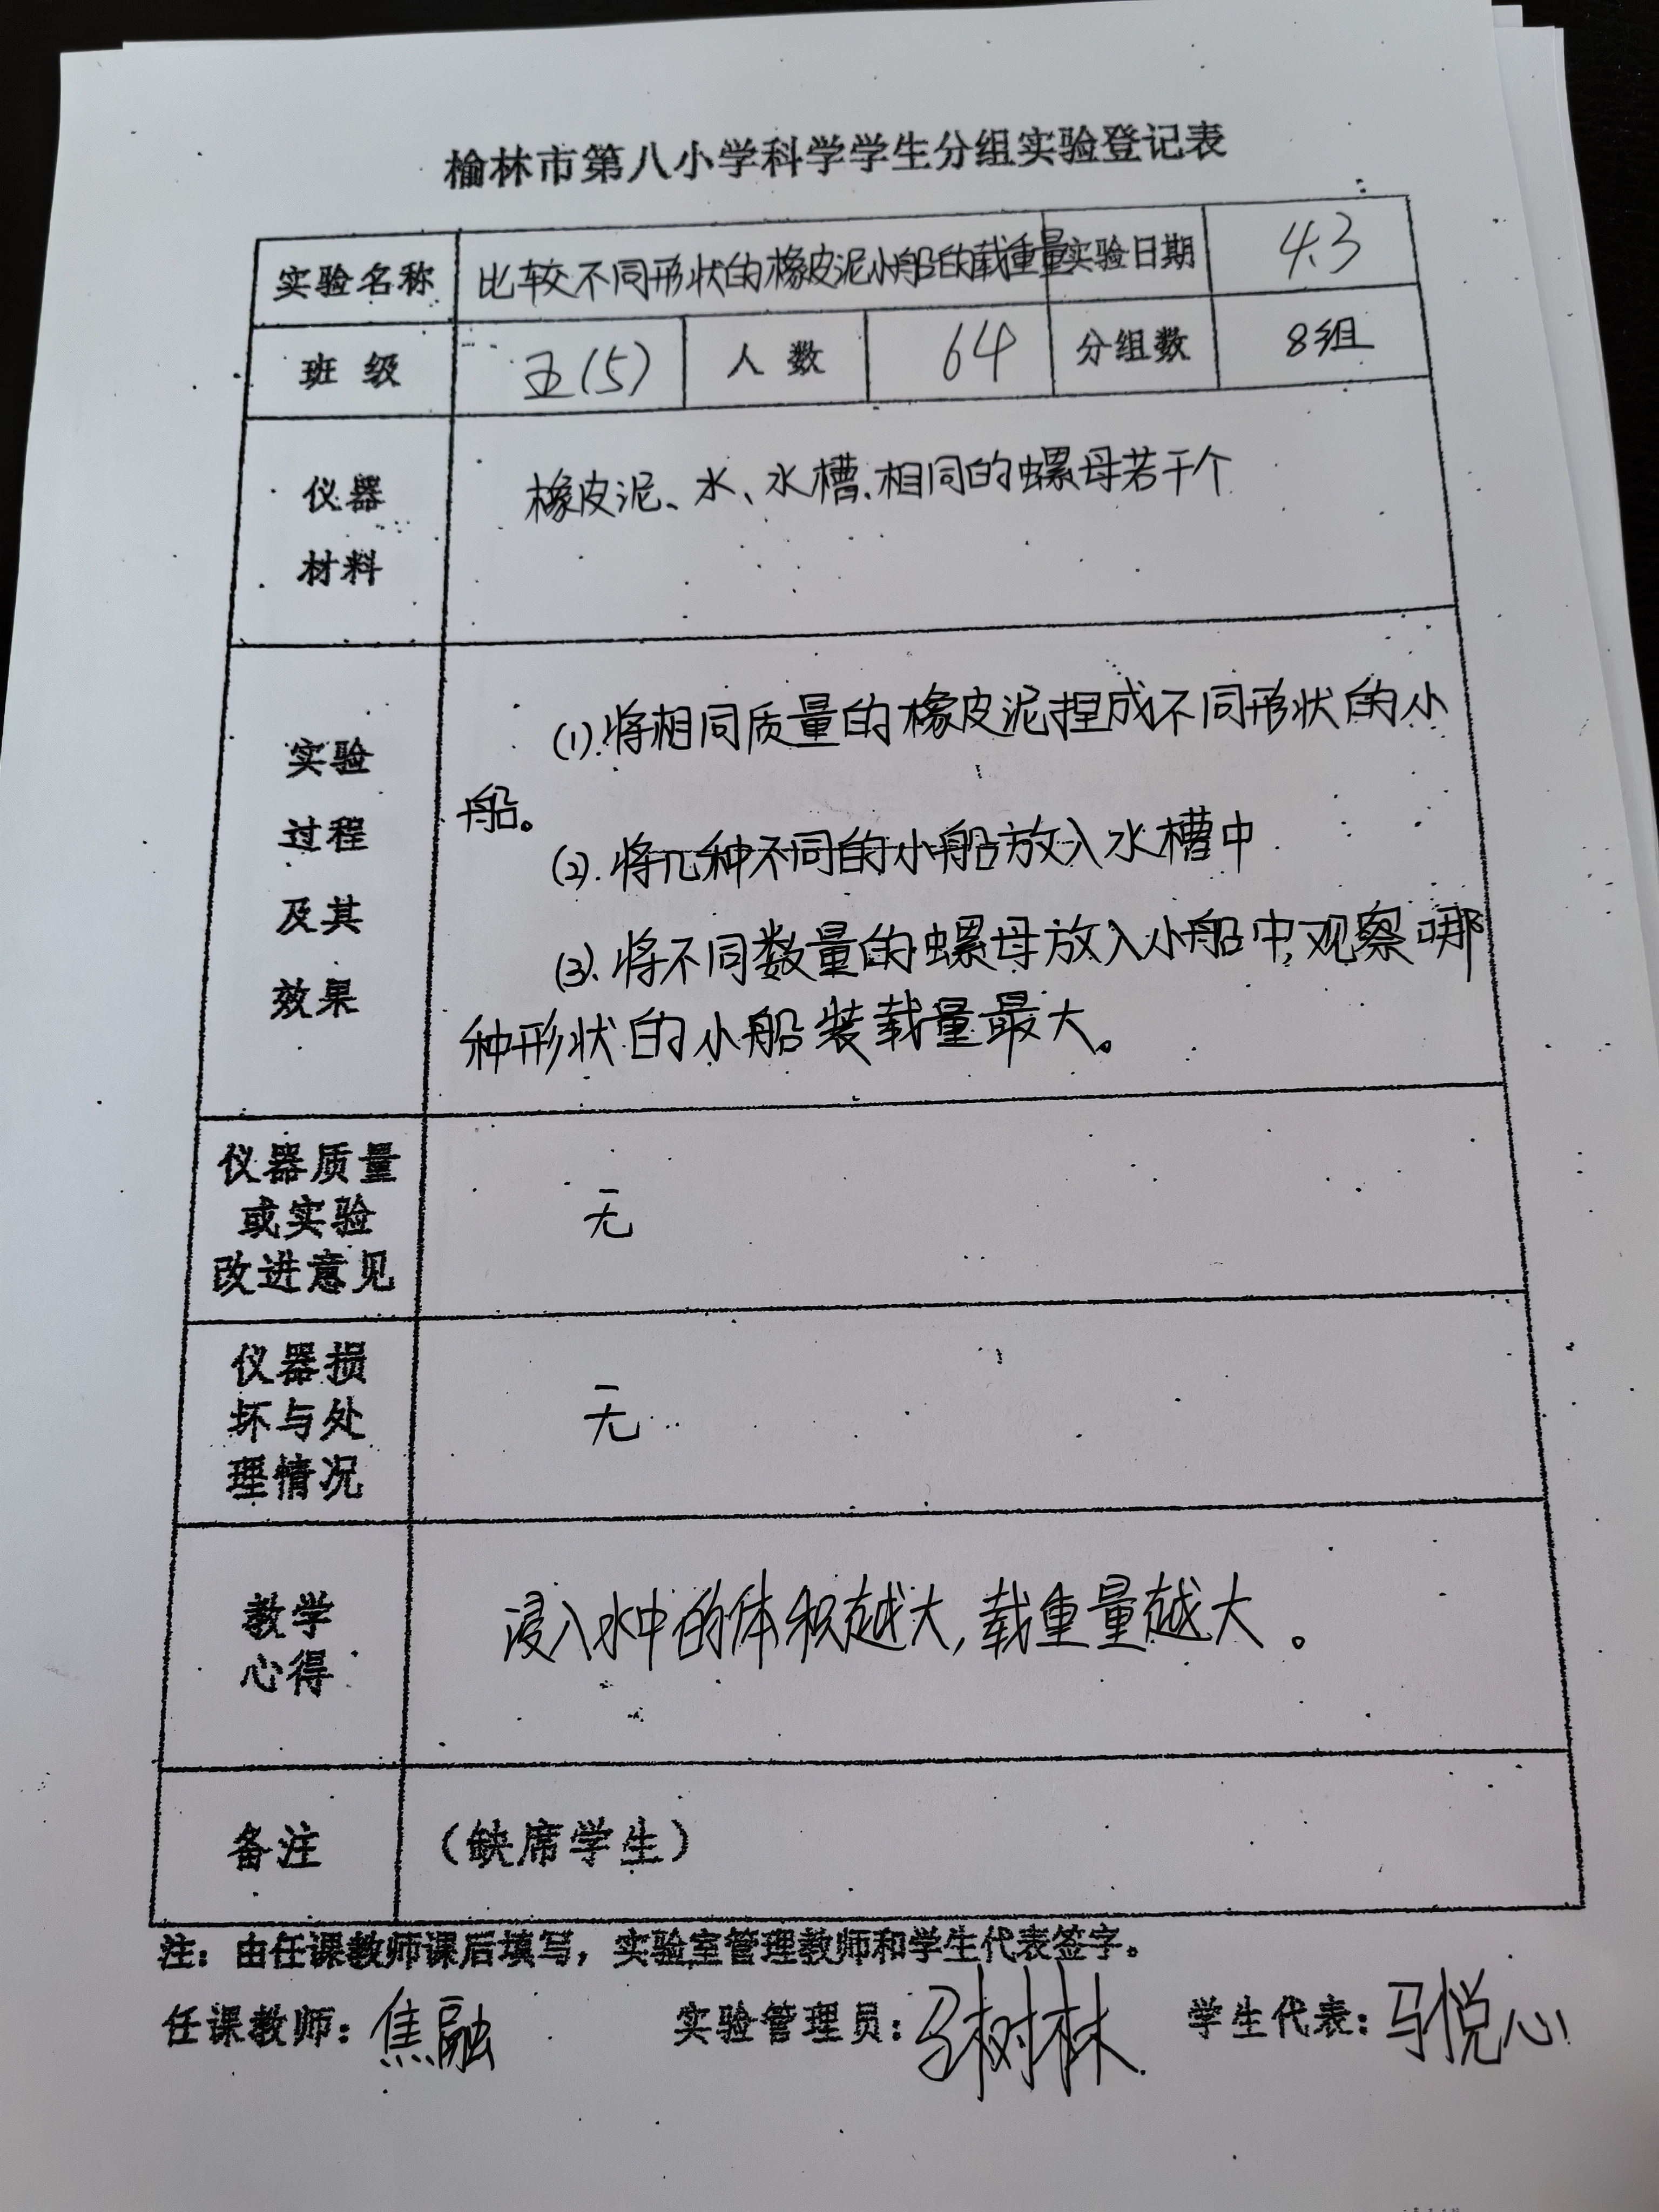 榆林市第八小学科学学生分组实验登记表
实验名称 比较不同形状的橡皮泥小船的载重量 实验日期 4.3
班 级 五(5) 人 数 64 分组数 8组
仪器
材料
橡皮泥、水、水槽、相同的螺母若干个
实验
过程
及其
效果
(1).将相同质量的橡皮泥捏成不同形状的小
船。
(2).将几种不同的小船放入水槽中
(3).将不同数量的螺母放入小船中,观察哪
种形状的小船装载量最大。
仪器质量
或实验
改进意见
无
仪器损
坏与处
理情况
无
教学
心得
浸入水中的体积越大,载重量越大。
备注 (缺席学生)
注：由任课教师课后填写，实验室管理教师和学生代表签字。
任课教师：焦融 实验管理员：马树林 学生代表：马悦心